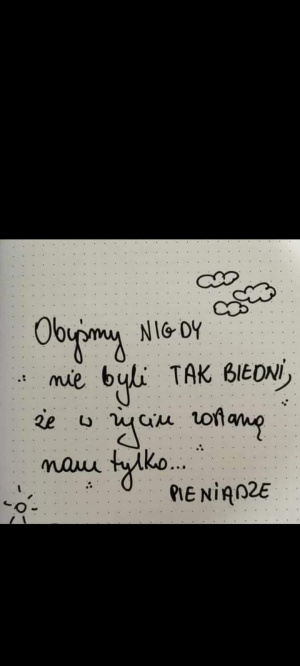 Obyśmy NIGDY
nie byli TAK BIEDNI,
że w życiu zostaną
nam tylko...
PIENIĄDZE